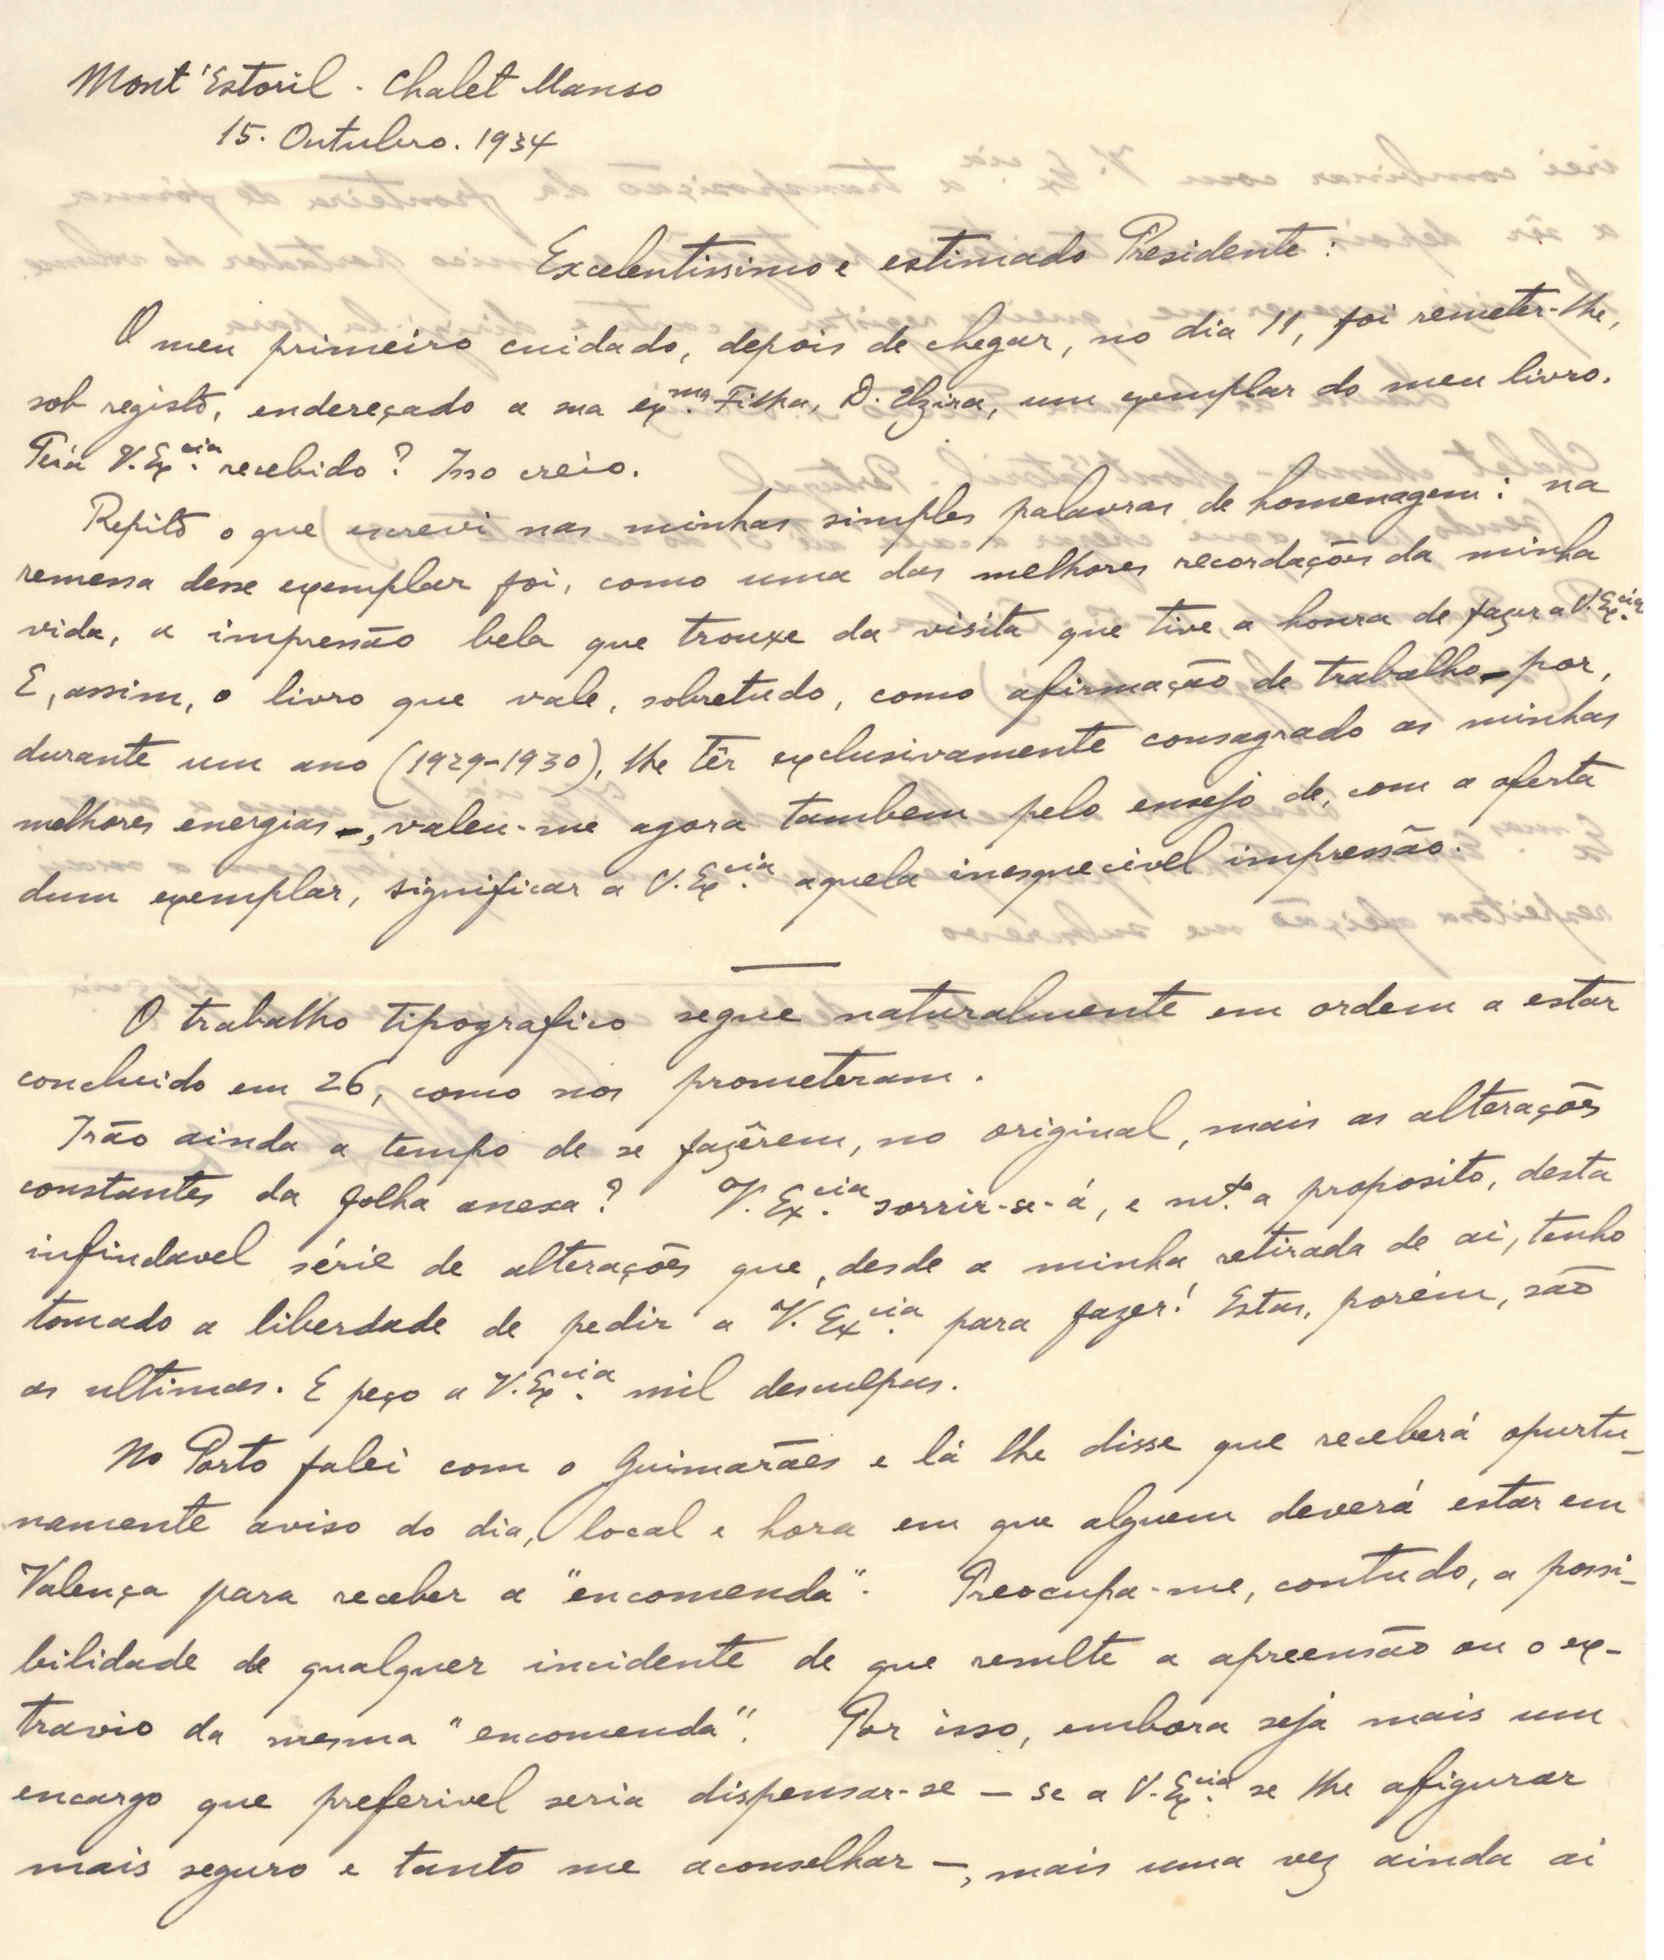 Mont'Estoril - Chalet Manso
15. Outubro. 1934
Excelentissimo e estimado Presidente:
O meu primeiro cuidado, depois de chegar, no dia 11, foi remeter-lhe,
sob registo, endereçado a sua exma. Filha, D. Elzira, um exemplar do meu livro.
Terá V. Excia. recebido? Isso creio.
Repito o que escrevi nas minhas simples palavras de homenagem: na
remessa desse exemplar foi, como uma das melhores recordações da minha
vida, a impressão bela que trouxe da visita que tive a honra de fazer a V. Excia.
E, assim, o livro que vale, sobretudo, como afirmação de trabalho - por,
durante um ano (1929-1930), lhe têr exclusivamente consagrado as minhas
melhores energias -, valeu-me agora tambem pelo ensejo de, com a oferta
dum exemplar, significar a V. Excia. aquela inesquecivel impressão.
O trabalho tipografico segue naturalmente em ordem a estar
concluido em 26, como nos prometeram.
Irão ainda a tempo de se fazêrem, no original, mais as alterações
constantes da folha anexa? V. Excia. sorrir-se-á, e mto. a proposito, desta
infindavel série de alterações que, desde a minha retirada de ai, tenho
tomado a liberdade de pedir a V. Excia. para fazer! Estas, porém, são
as ultimas. E peço a V. Excia. mil desculpas.
No Porto falei com o Guimarães e lá lhe disse que receberá oportu-
namente aviso do dia, local e hora em que alguem deverá estar em
Valença para receber a "encomenda". Preocupa-me, contudo, a possi-
bilidade de qualquer incidente de que resulte a apreensão ou o ex-
travio da mesma "encomenda". Por isso, embora seja mais um
encargo que preferivel seria dispensar-se - se a V. Excia. se lhe afigurar
mais seguro e tanto me aconselhar -, mais uma vez ainda ai